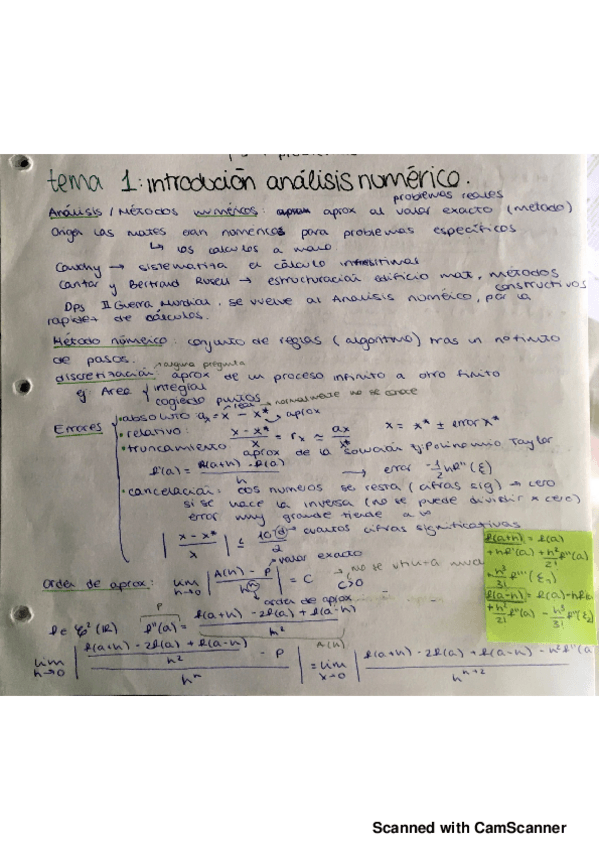 tema 1: introdución análisis numérico.
problemas reales
Análisis / Métodos numéricos: aprox al valor exacto (metodo)
Origen las mates eran numéricas para problemas específicos
↳ los calculos a mano
Cauchy → sistematiza el cálculo
Cantor y Bertrand Rusell → estructuración edificio mat, métodos
constructivos
Dps II Guerra Mundial, se vuelve al Análisis numéico, por la
rapidez de cálculos.
Método númerico: conjunto de reglas (algoritmo) tras un nº finito
de pasos.
→ alguna pregunta
discretización: aprox de un proceso infinito a otro finito
ej: Area y integral
cogiendo puntos
real → normalmente no se conoce
Errores
• absoluto aₓ = x - x* → aprox
• relativo: (x - x*)/x = rₓ ≈ aₓ/x* x = x* ± error x*
• truncamiento aprox de la solución ej: Polinomio Taylor
f'(a) = (f(a+h) - f(a))/h → error -1/2 h f''(ξ)
• cancelación: dos numeros se resta (cifras sig) → cero
si se hace la inversa (no se puede dividir x cero)
error muy grande tiende a ∞
|(x - x*)/x| ≤ 10^-d/2 → cuantas cifras significativas
→ valor exacto
Orden de aprox: lim h→0 |(A(h) - P)/h^n| = C C>0
→ orden de aprox
P
f ∈ C²(ℝ) f''(a) = (f(a+h) - 2f(a) + f(a-h))/h²
A(h)
lim h→0 |((f(a+h) - 2f(a) + f(a-h))/h² - P)/h^n| = lim x→0 |(f(a+h) - 2f(a) + f(a-h) - h² f''(a)/h^(n+2)
f(a+h) = f(a)
+hf'(a) + h²/2! f''(a)
+h³/3! f'''(ξ₁)
f(a-h) = f(a) - hf'(a)
+h²/2! f''(a) - h³/3! f'''(ξ₂)
Scanned with CamScanner